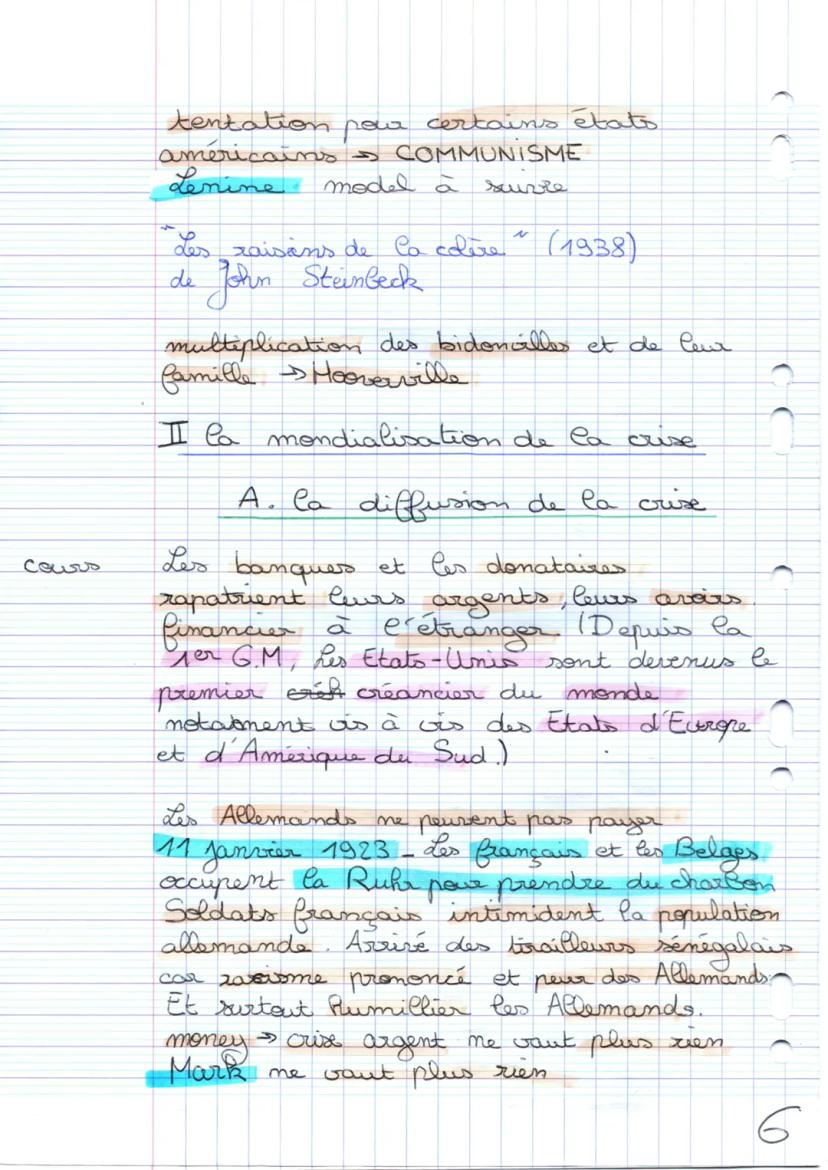 tentation pour certains états
américains → COMMUNISME
Lenine model à suivre
"Les raisins de la colère" (1938)
de John Steinbeck
multiplication des bidonvilles et de leur
famille → Hooverville
II la mondialisation de la crise
A. la diffusion de la crise
cours Les banques et les donataires
rapatrient leurs argents, leurs avoirs
financier à l'étranger. (Depuis la
1er G.M, Les Etats-Unis sont devenus le
premier créancier du monde
notamment vis à vis des Etats d'Europe
et d'Amérique du Sud.)
Les Allemands ne peuvent pas payer
11 janvier 1923 - Les français et les Belges
occupent la Ruhr pour prendre du charbon
Soldats français intimident la population
allemande. Arrivé des tirailleurs sénégalais
car racisme prononcé et peur des Allemands.
Et surtout humillier les Allemands.
money → crise argent ne vaut plus rien
Mark ne vaut plus rien
6